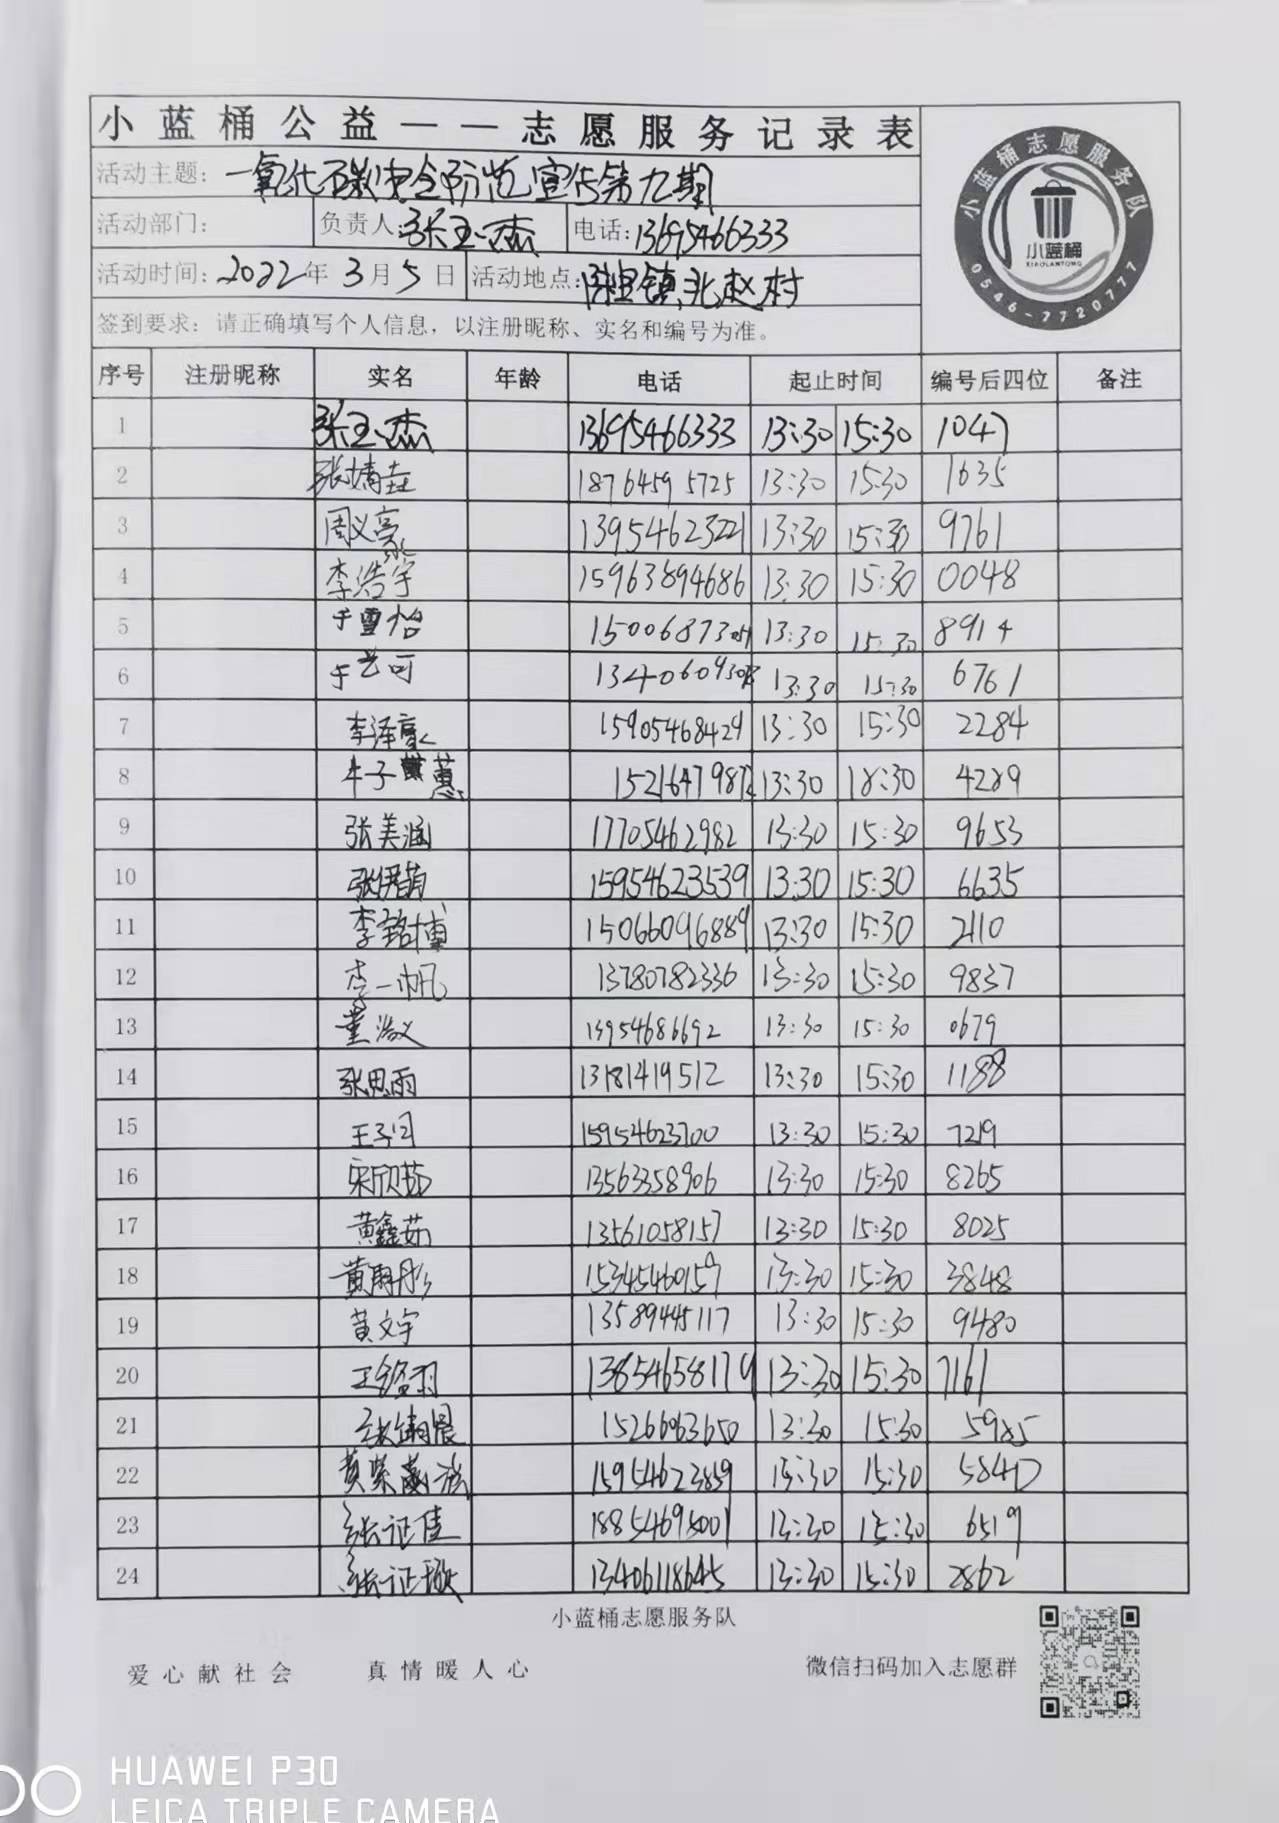 小蓝桶公益——志愿服务记录表
活动主题：一氧化碳安全防范宣传第九期
活动部门： 负责人：张玉杰 电话：13695466333
活动时间：2022年3月5日 活动地点： 镇北赵村
签到要求：请正确填写个人信息，以注册昵称、实名和编号为准。
小蓝桶志愿服务队
小蓝桶
XIAOLANTONG
0546-7720777
序号 注册昵称 实名 年龄 电话 起止时间 编号后四位 备注
1 张玉杰 13695466333 13:30 15:30 1047
2 张婧垚 18764595725 13:30 15:30 1635
3 周义豪 13954623221 13:30 15:30 9761
4 李浩宇 15963894686 13:30 15:30 0048
5 于雪怡 13:30 15:30 8914
6 于艺可 13:30 15:30 6761
7 李泽豪 15905468429 13:30 15:30 2284
8 牛子蕙 13:30 18:30 4289
9 张美涵 17705462982 13:30 15:30 9653
10 15954623539 13:30 15:30 6635
11 李铭博 15066096889 13:30 15:30 2110
12 李一帆 13780782336 13:30 15:30 9837
13 董浩义 13954686692 13:30 15:30 0679
14 张思雨 13181419512 13:30 15:30 1188
15 王子闫 15954623700 13:30 15:30 7219
16 宋欣茹 13563358906 13:30 15:30 8265
17 黄鑫茹 13561058157 13:30 15:30 8025
18 15345460159 13:30 15:30 3848
19 黄文宇 13589445117 13:30 15:30 9480
20 13854658179 13:30 15:30 7161
21 15266063650 13:30 15:30 5985
22 15954623859 13:30 15:30 5840
23 张证佳 18854695001 13:30 15:30 6519
24 13406118645 13:30 15:30 2862
小蓝桶志愿服务队
爱心献社会 真情暖人心 微信扫码加入志愿群
HUAWEI P30
LEICA TRIPLE CAMERA